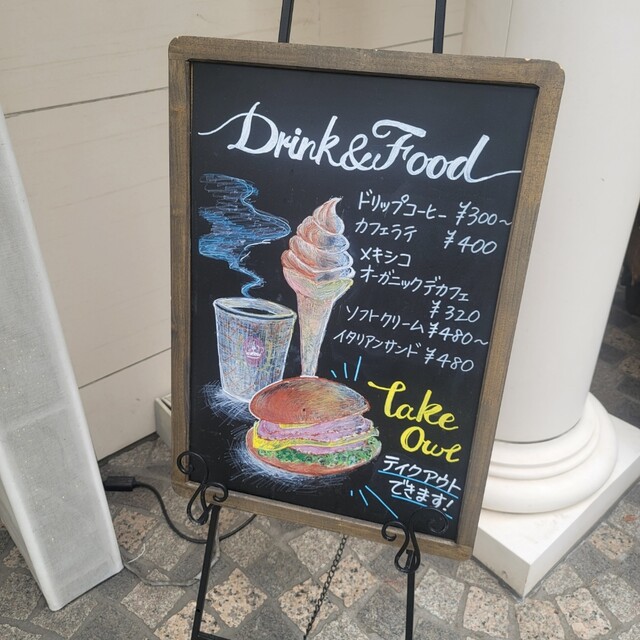 Drink&Food
ドリップコーヒー ¥300〜
カフェラテ ¥400
メキシコ
オーガニックデカフェ
¥320
ソフトクリーム ¥480〜
イタリアンサンド ¥480
Take
Out
テイクアウト
できます!